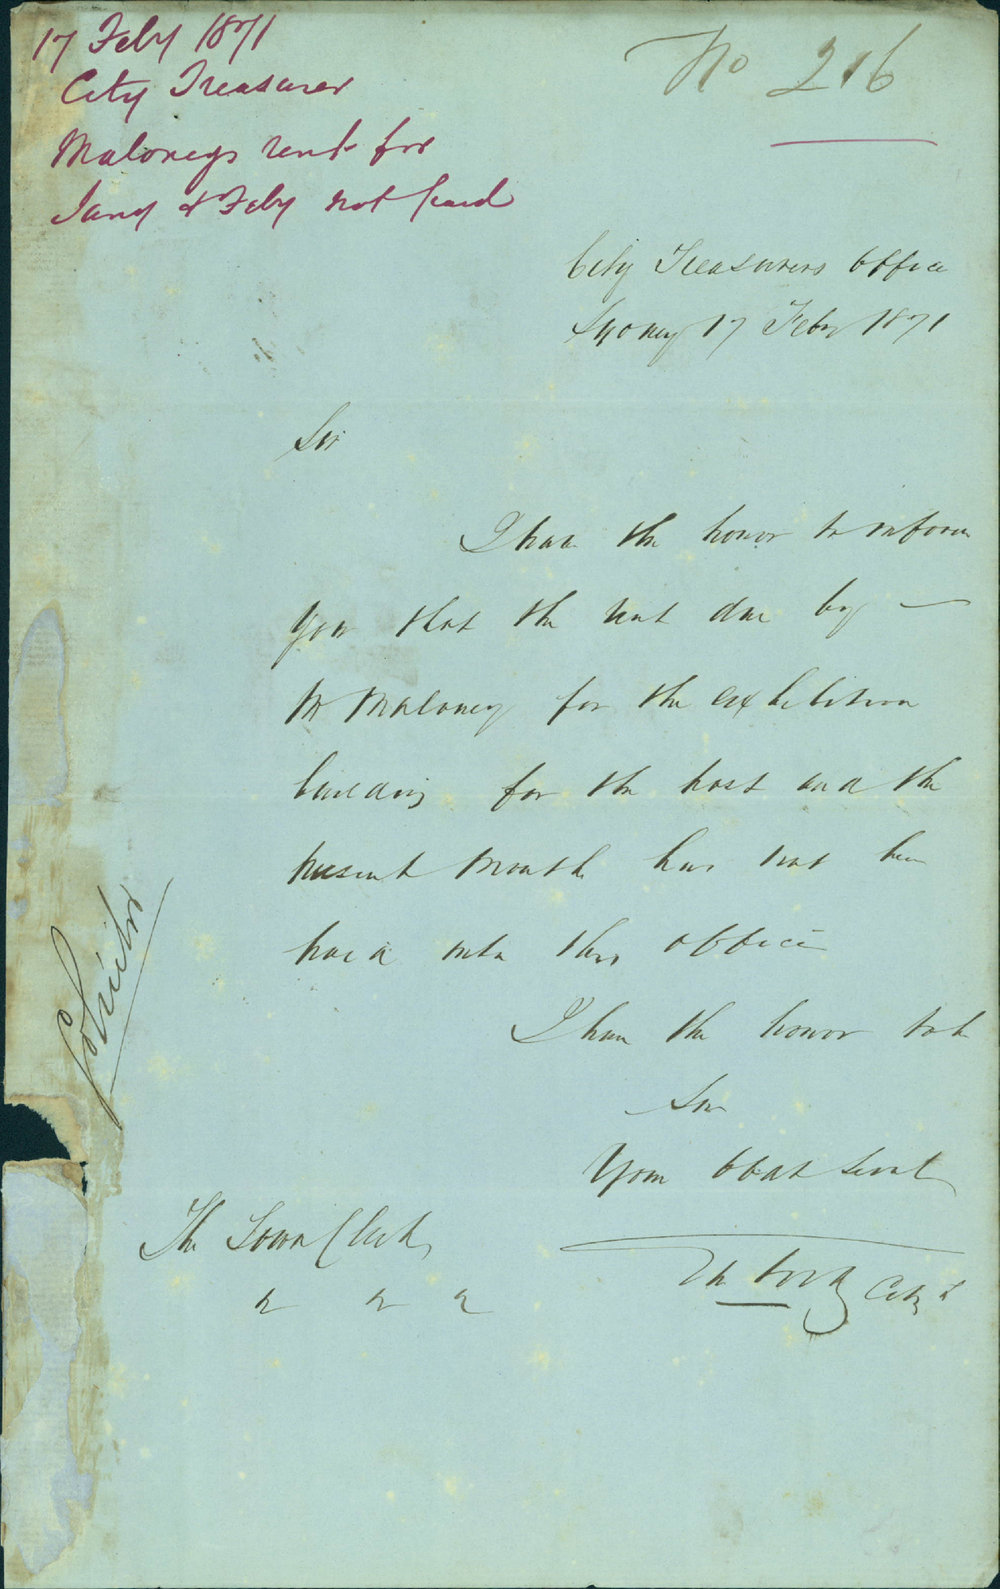 17 Feby 1871
City Treasurer
Maloneys rent for
Jany & Feby not paid
No 216
City Treasurers Office
Sydney 17 Feby 1871
Sir
I have the honor to inform
you that the rent due by —
Mr Maloney for the exhibition
building for the past and the
present month has not been
paid into this office
I have the honor to be
Sir
Your obdt Servt
City T
The Town Clerk
Solicitor